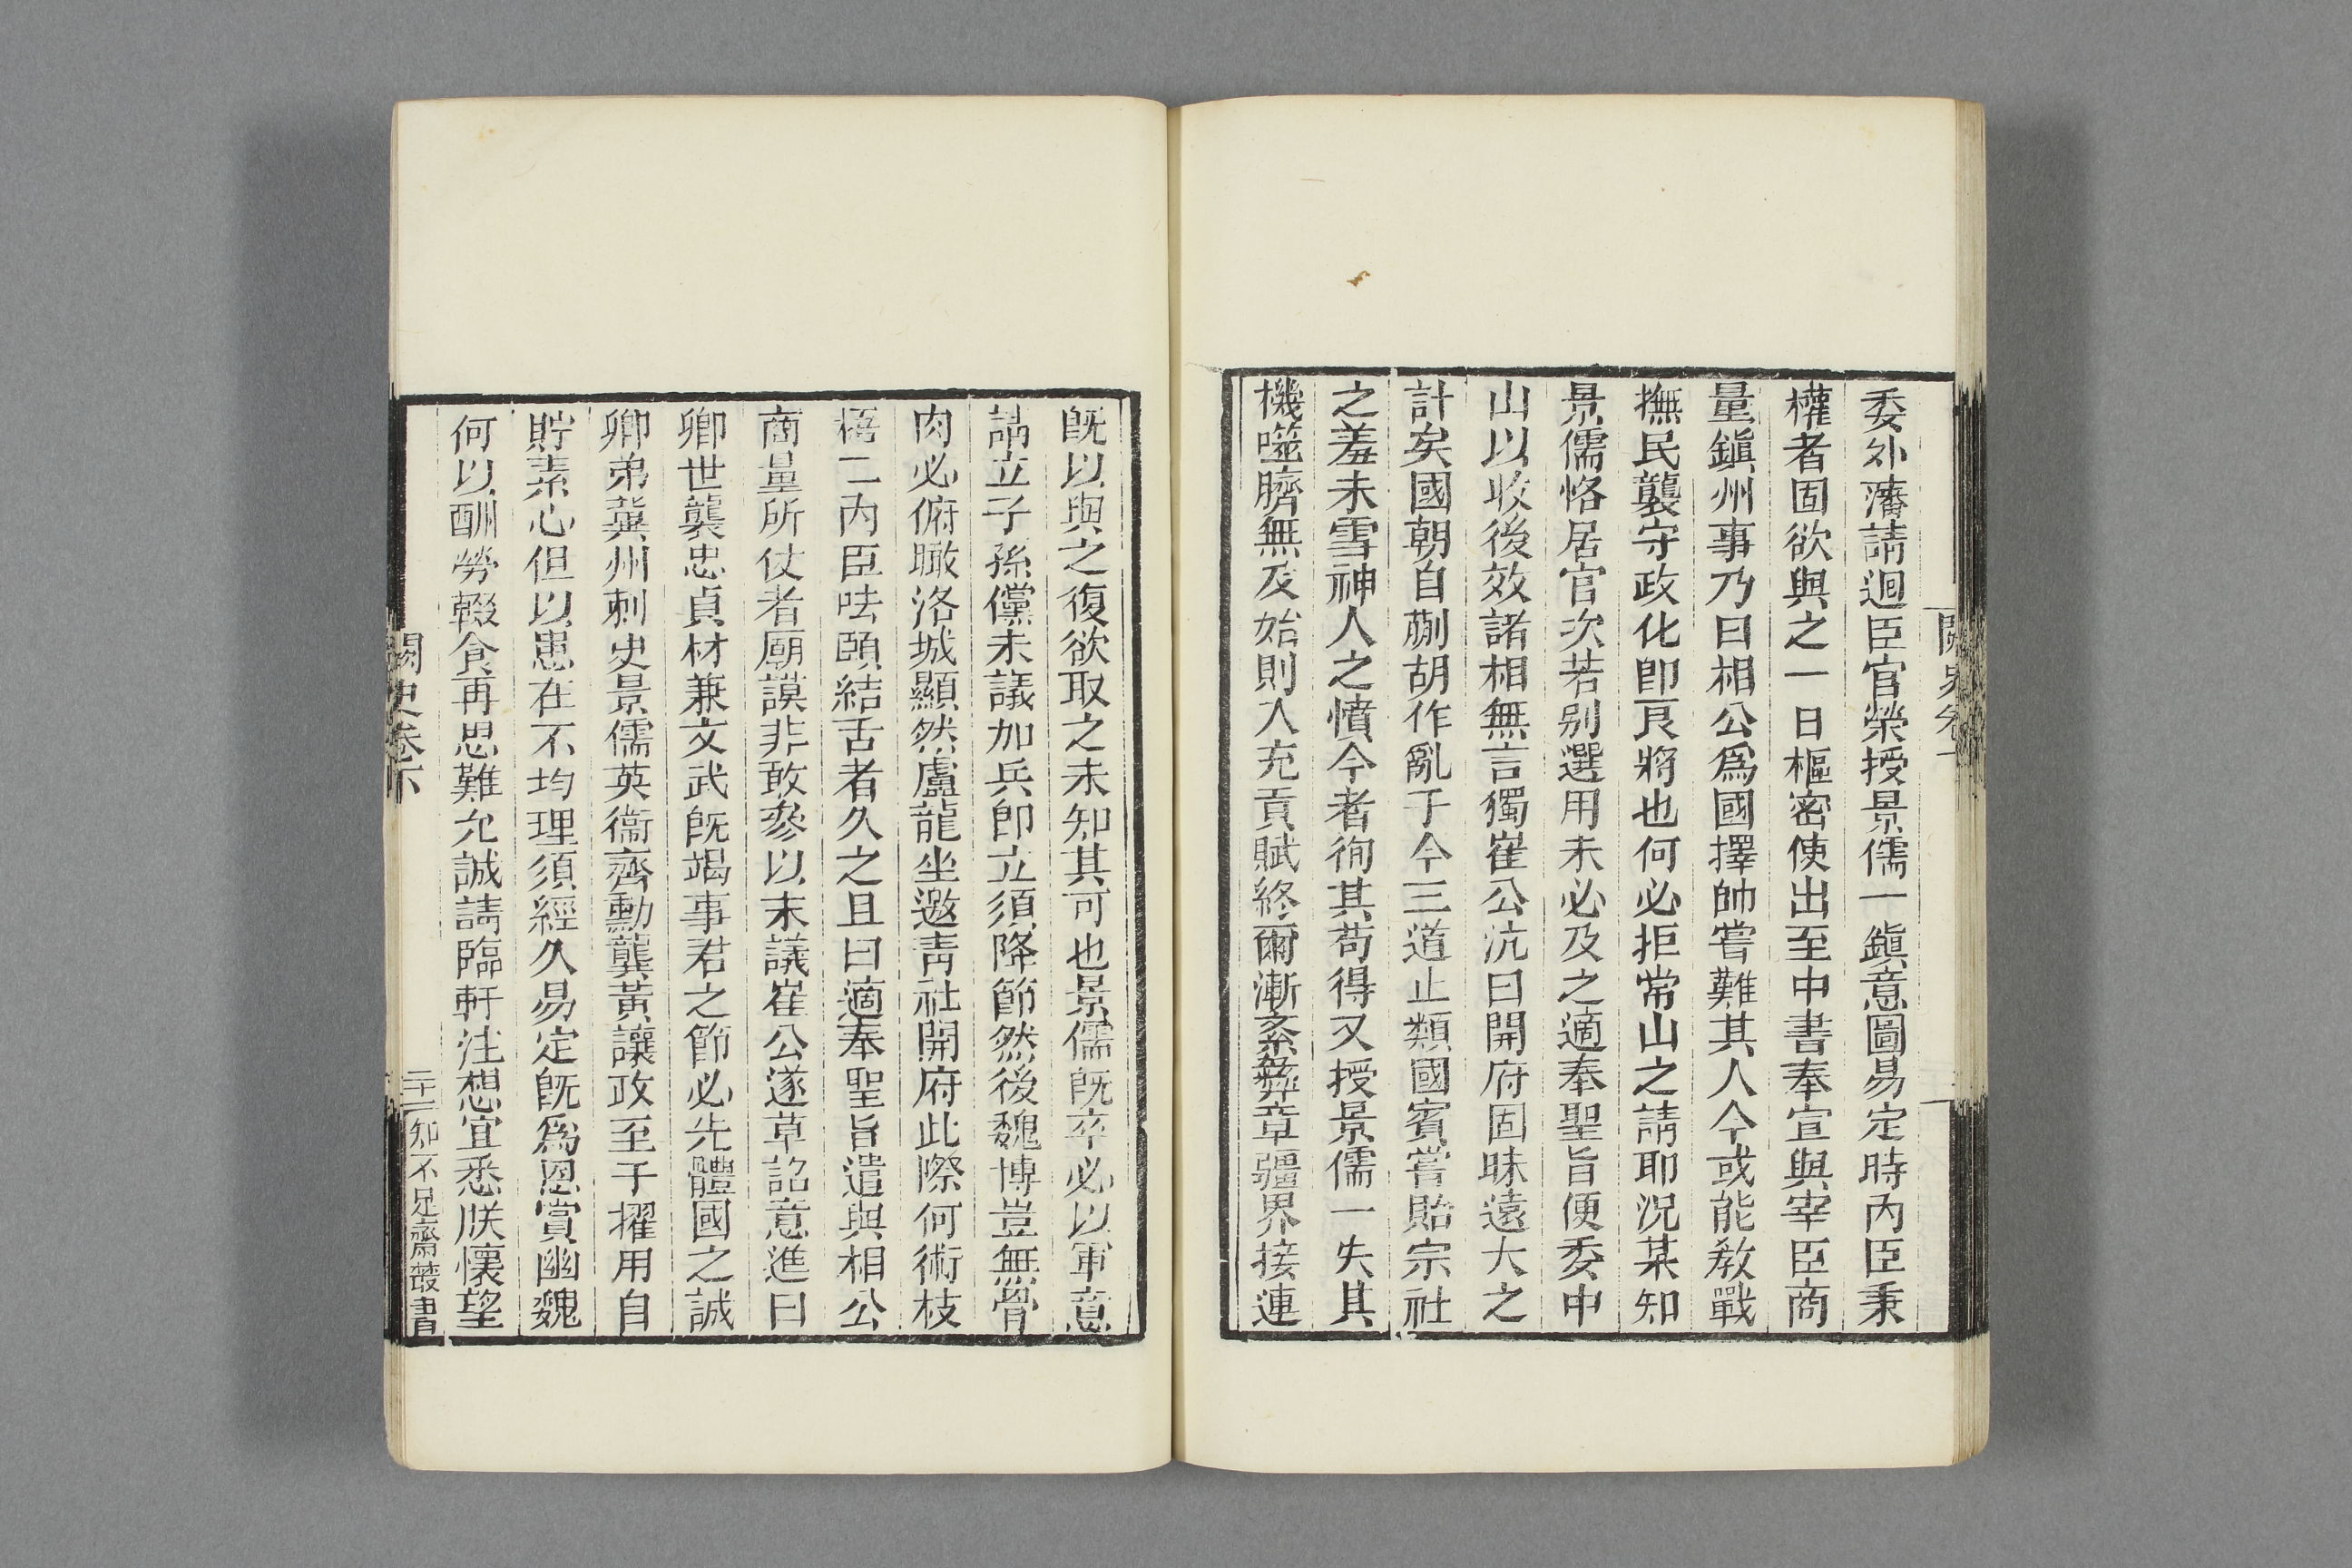 委外藩請迴臣官榮授景儒一鎭意圖易定時內臣秉
權者固欲與之一日樞密使出至中書奉宣與宰臣商
量鎭州事乃曰相公爲國擇帥嘗難其人今或能敎戰
撫民襲守政化卽良將也何必拒常山之請耶況某知
景儒恪居官次若別選用未必及之適奉聖旨便委中
山以收後效諸相無言獨崔公沆曰開府固昧遠大之
計矣國朝自蒯胡作亂于今三道止類國賓嘗貽宗社
之羞未雪神人之憤今者徇其苟得又授景儒一失其
機噬臍無及始則入充貢賦終爾漸紊彝章疆界接連
旣以與之復欲取之未知其可也景儒旣卒必以軍意
請立子孫儻未議加兵卽立須降節然後魏博豈無骨
肉必俯瞰洛城顯然盧龍坐邀靑社開府此際何術枝
梧二內臣呿頤結舌者久之且曰適奉聖旨遣與相公
商量所仗者廟謨非敢參以末議崔公遂草詔意進曰
卿世襲忠貞材兼文武旣竭事君之節必先體國之誠
卿弟冀州刺史景儒英衞齊勳龔黃讓政至于擢用自
貯素心但以患在不均理須經久易定旣爲恩賞幽魏
何以酬勞輟食再思難允誠請臨軒注想宜悉朕懷望
闕史卷下
二十一
知不足齋叢書